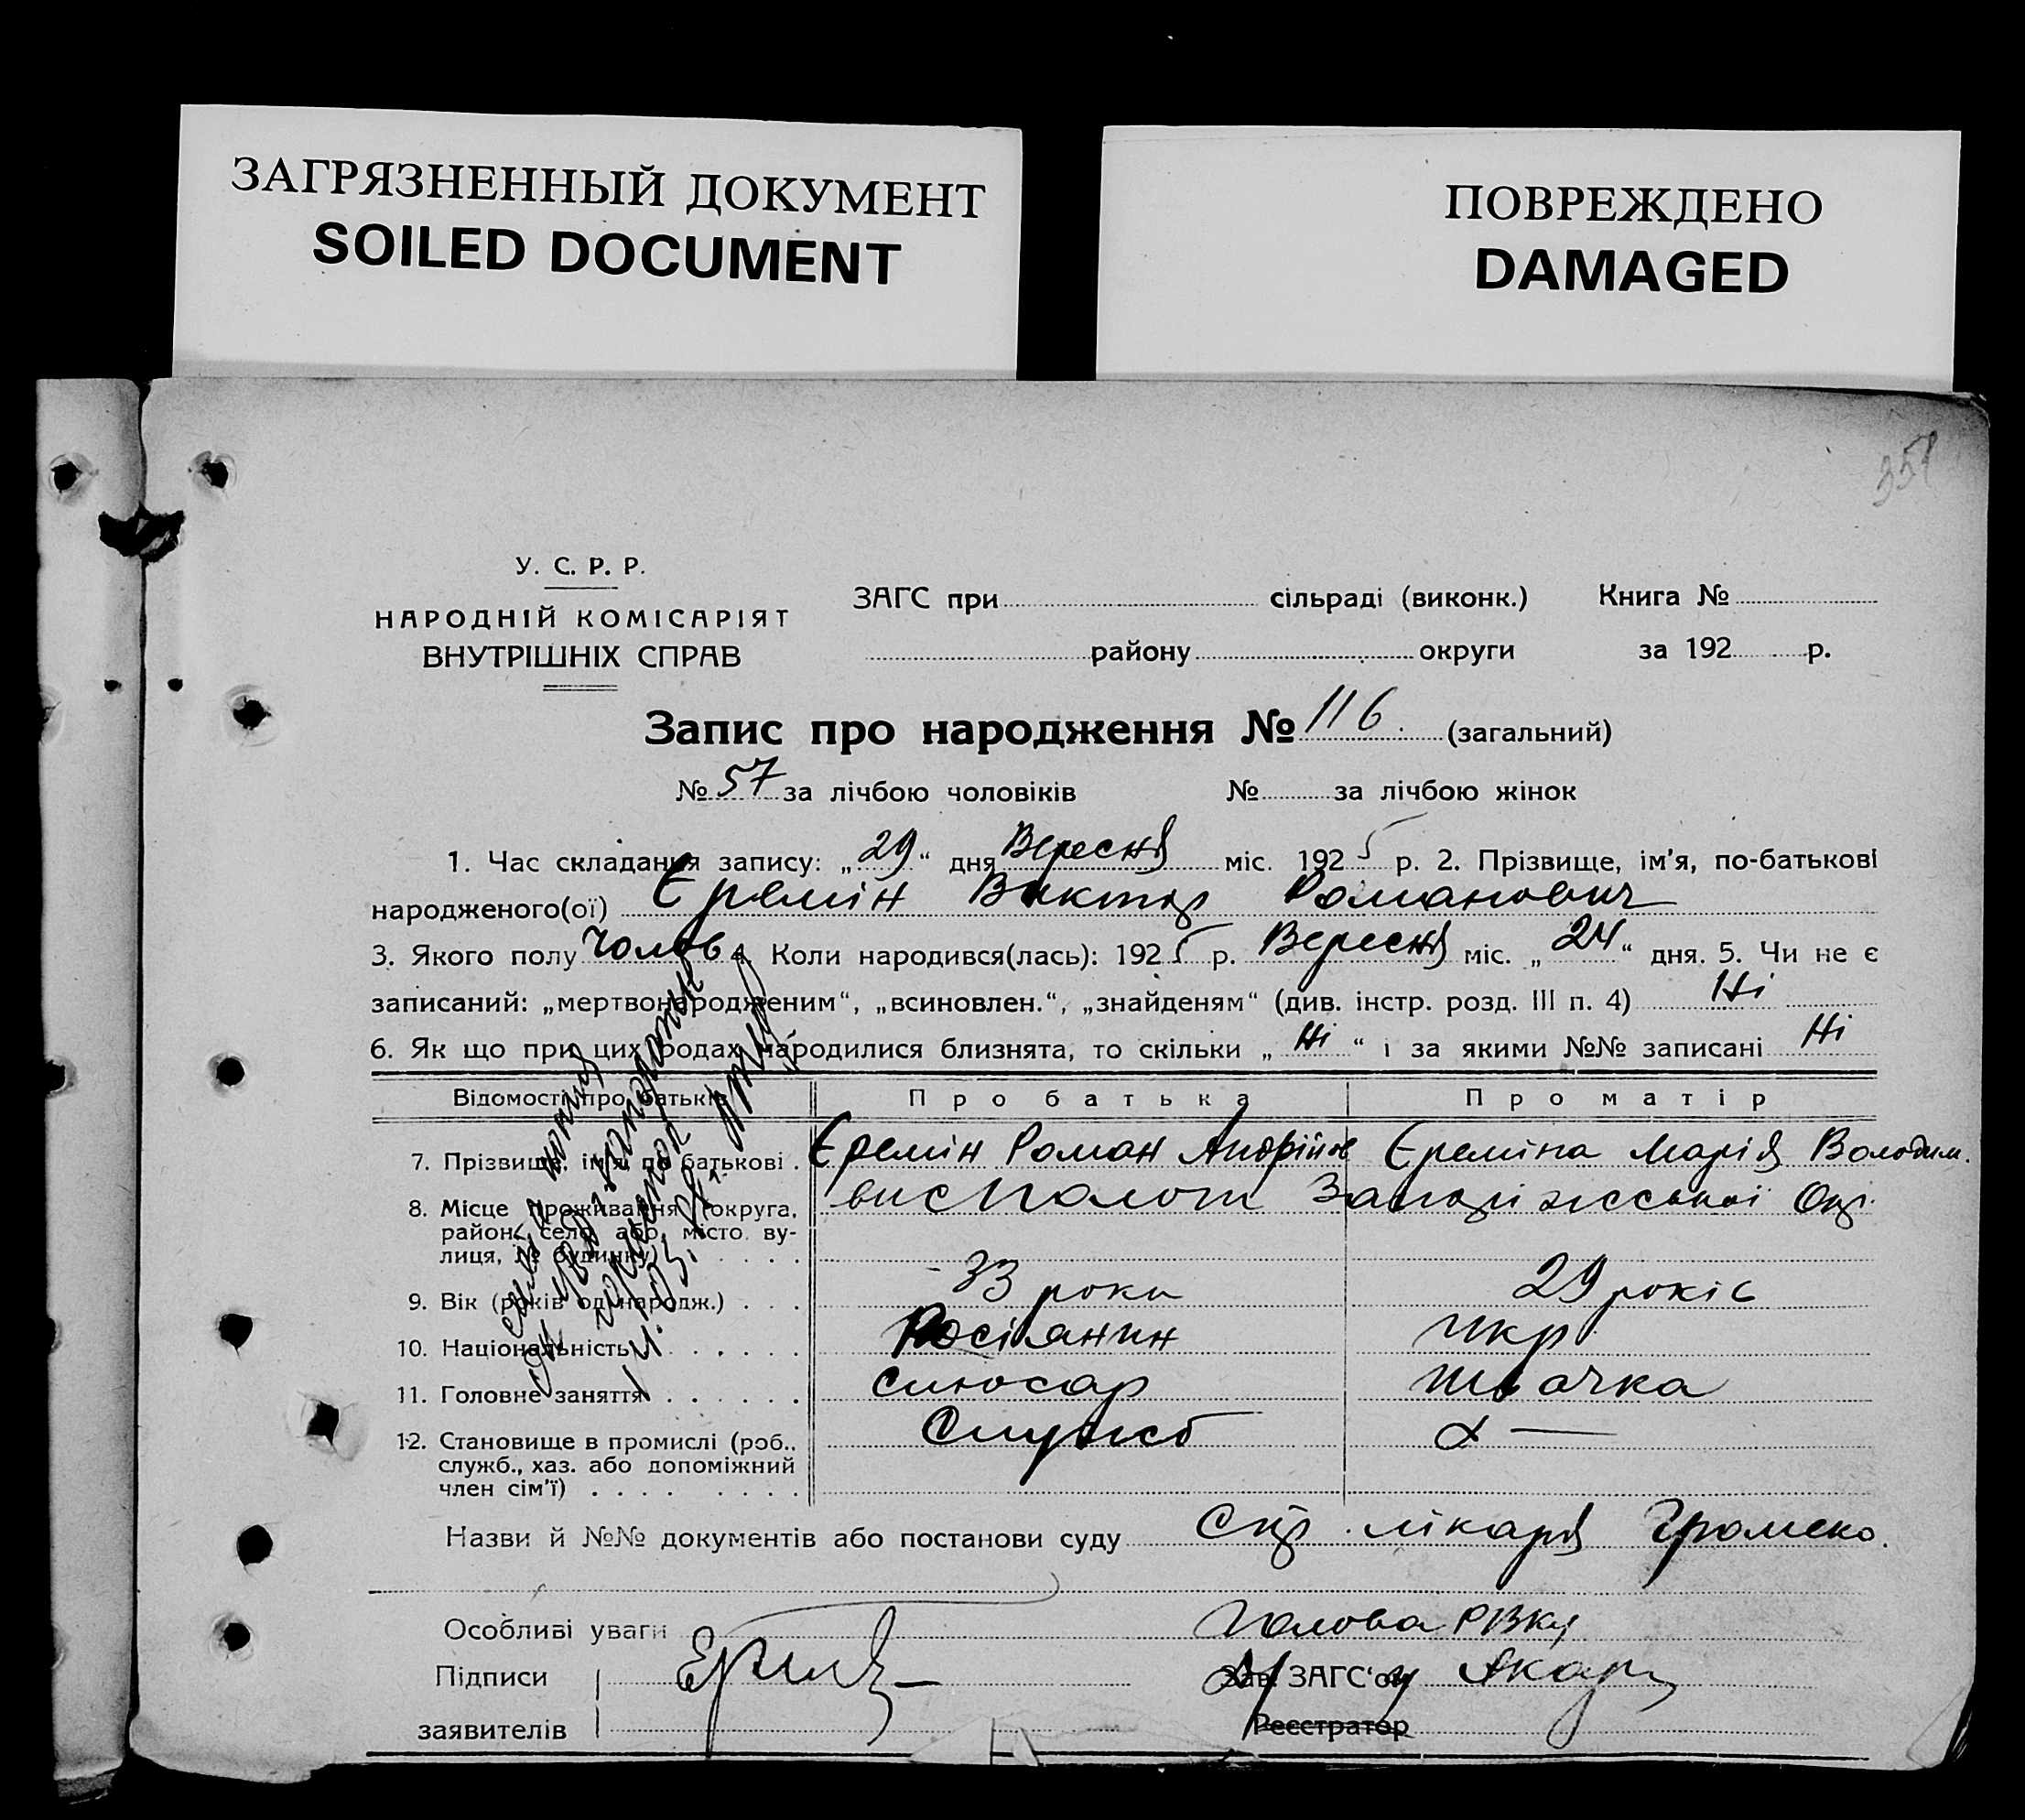 ЗАГРЯЗНЕННЫЙ ДОКУМЕНТ
SOILED DOCUMENT
ПОВРЕЖДЕНО
DAMAGED
351
У. С. Р. Р.
НАРОДНІЙ КОМІСАРІЯТ
ВНУТРІШНІХ СПРАВ
ЗАГС при сільраді (виконк.) Книга №
району округи за 192 р.
Запис про народження № 116. (загальний)
№ 57 за лічбою чоловіків № за лічбою жінок
1. Час складання запису: „29“ дня Вересня міс. 1925 р. 2. Прізвище, ім'я, по-батькові
народженого(ої) Єремін Виктор Романович
3. Якого полу чолов 4. Коли народився(лась): 1925 р. Вересня міс. „24“ дня. 5. Чи не є
записаний: „мертвонародженим“, „всиновлен.“, „знайденям“ (див. інстр. розд. III п. 4) Ні
6. Як що при цих родах народилися близнята, то скільки „Ні“ і за якими №№ записані Ні
Відомості про батьків Про батька Про матір
7. Прізвище, ім'я, по батькові . Єремін Роман Андрійов Єреміна Марія Володим.
8. Місце проживання (округа,
район, село або місто. ву-
лиця, № будинку)
Запорізсськоі Окр.
9. Вік (років од народж.) . . . 33 роки 29 років
10. Національність . . . . . . Росіянин Укр
11. Головне заняття . . . . . . Слюсар Швачка
12. Становище в промислі (роб.,
служб., хаз. або допоміжний
член сім'ї) . . . .
Служб
Назви й №№ документів або постанови суду Спр. лікаря Громеко.
Особливі уваги Голова РВК
Підписи
заявителів
Зав. ЗАГС'ом
Реєстратор